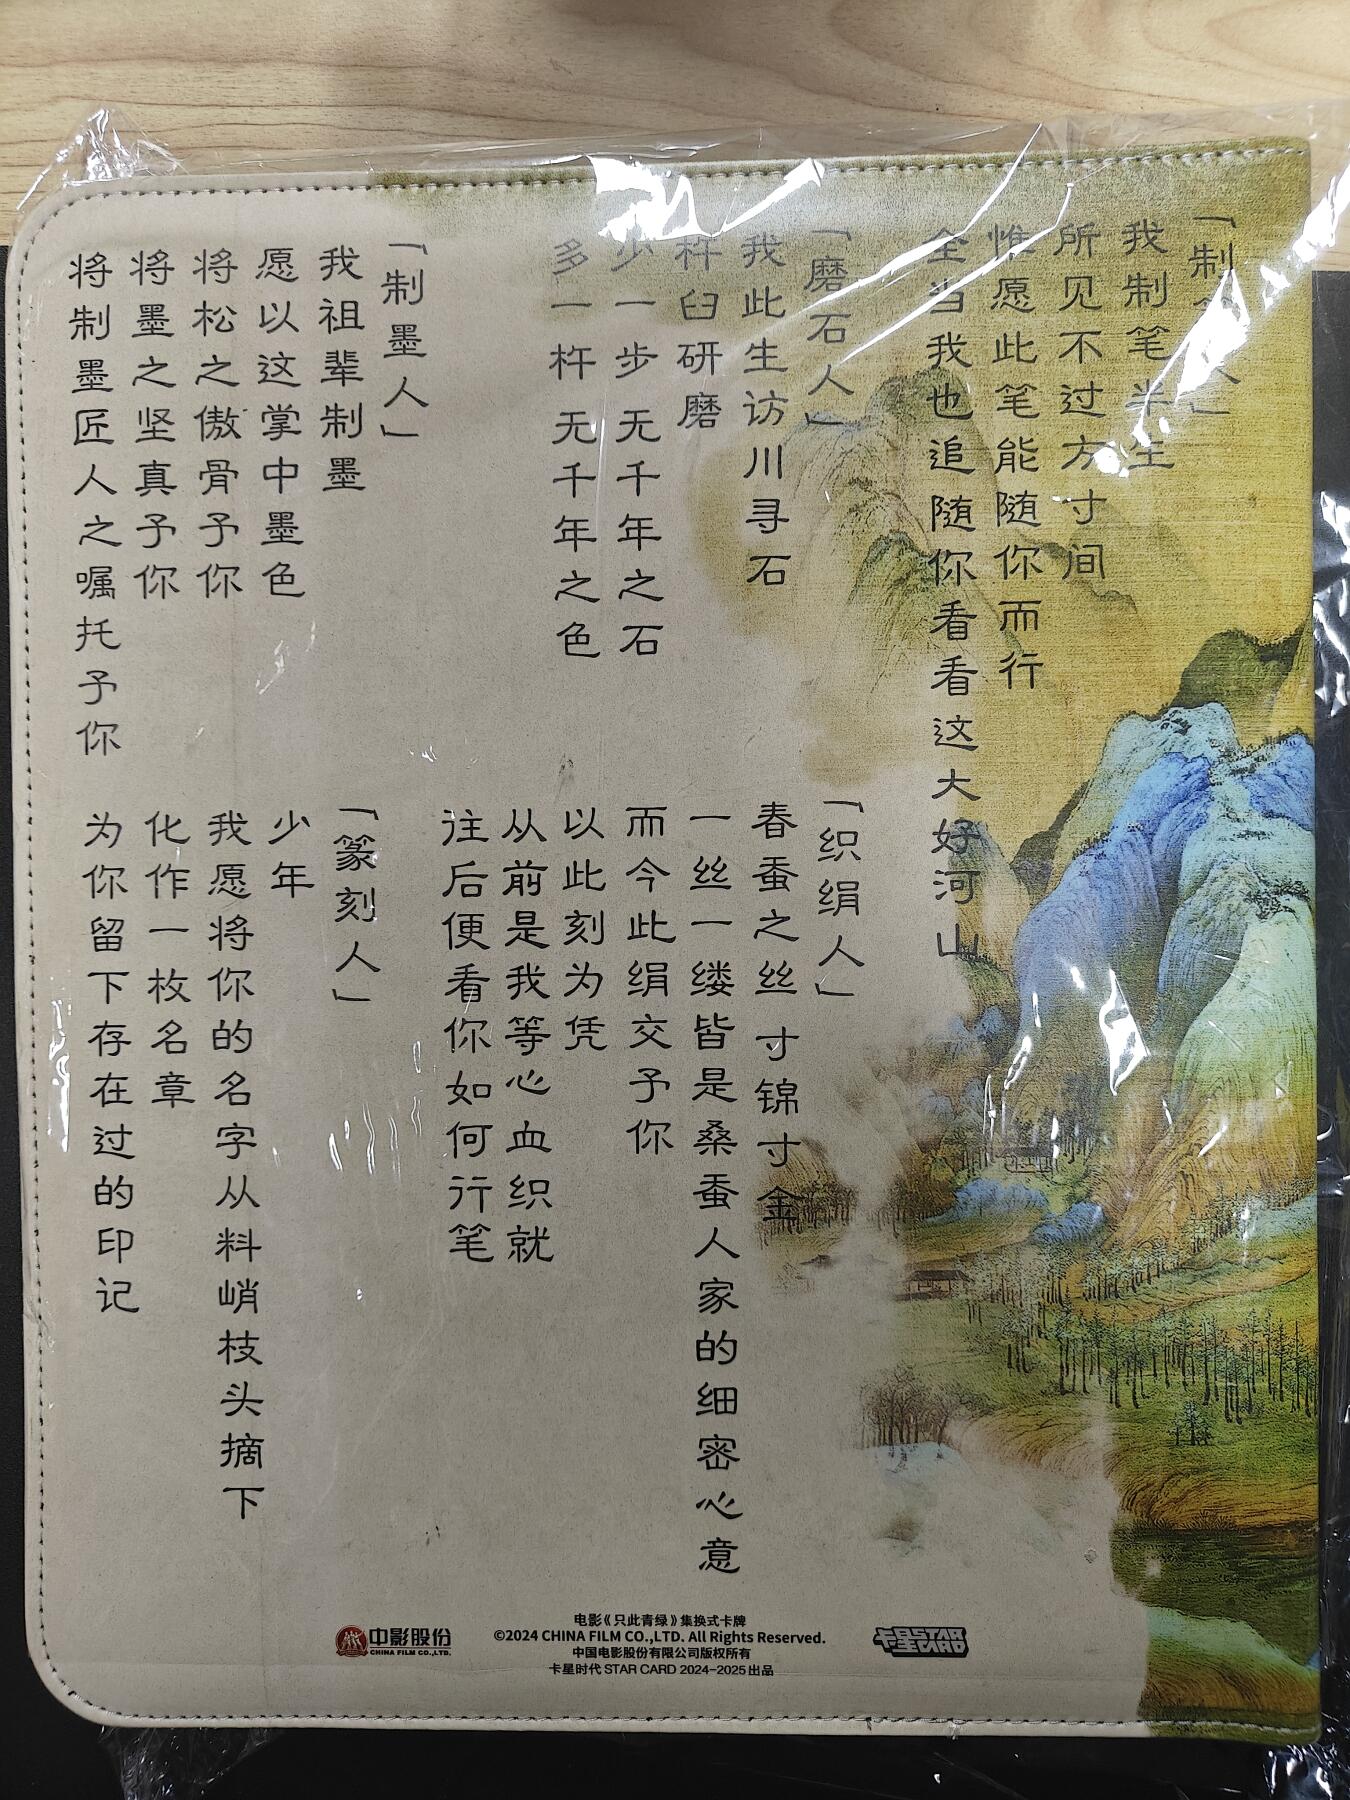 「制笔人」
我制笔半生
所见不过方寸间
惟愿此笔能随你而行
全当我也追随你看看这大好河山
「磨石人」
我此生访川寻石
杵臼研磨
少一步 无千年之石
多一杵 无千年之色
「制墨人」
我祖辈制墨
愿以这掌中墨色
将松之傲骨予你
将墨之坚真予你
将制墨匠人之嘱托予你
「织绢人」
春蚕之丝 寸锦寸金
一丝一缕皆是桑蚕人家的细密心意
而今此绢交予你
以此刻为凭
从前是我等心血织就
往后便看你如何行笔
「篆刻人」
少年
我愿将你的名字从料峭枝头摘下
化作一枚名章
为你留下存在过的印记
中影股份
CHINA FILM CO.,LTD.
电影《只此青绿》集换式卡牌
©2024 CHINA FILM CO.,LTD. All Rights Reserved.
中国电影股份有限公司版权所有
卡星时代 STAR CARD 2024-2025出品
卡星STAR
卡星CARD